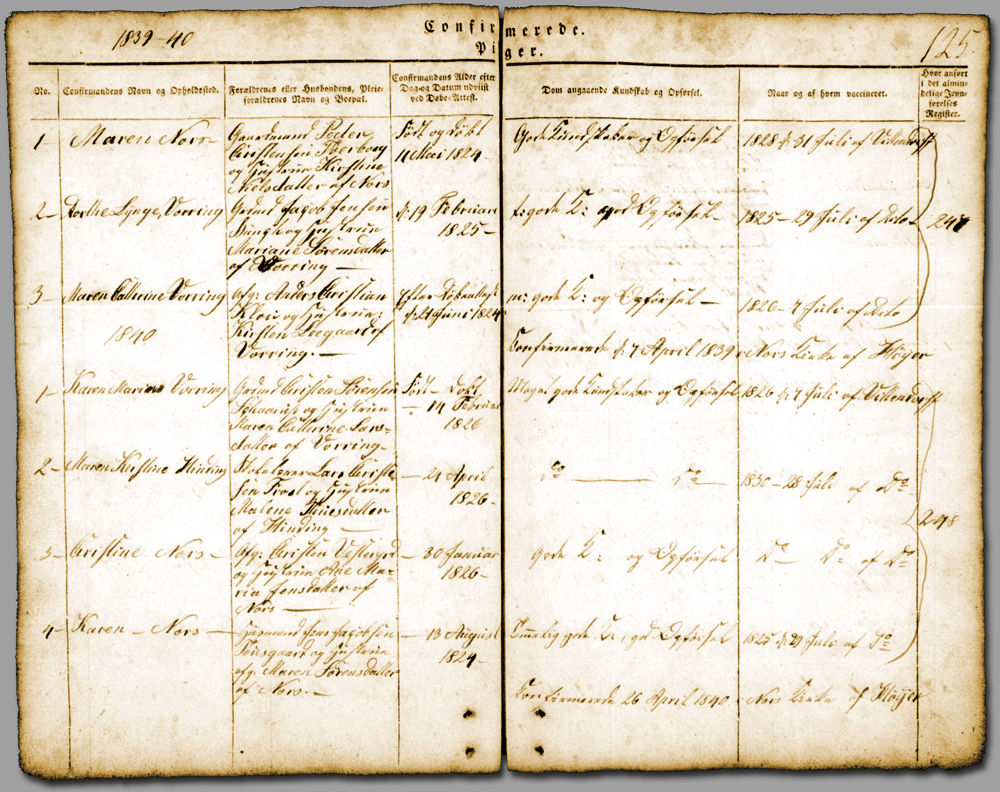 1839-40
Confirmerede.
Piger.
125.
No.
Confirmandens Navn og Opholdssted.
Forældrenes eller Husbondens, Pleie-
forældrenes Navn og Borpæl.
Confirmandens Alder efter
Dag og Datum udviist
ved Døbe-Attest.
Dom angaaende Kundskab og Opførsel.
Naar og af hvem vaccineret.
Hvor anført
i det almin-
delige Jevn-
førelses
Register.
1 Maren Nors
Gaardmand Peder
Christensen
og Hustrue Kirstine
Nielsdatter af Nors
Født og døbt
11 Mai 1824
Gode Kundskaber og Opførsel
1828 d. 31 Juli af Vittendorff
2 Dorthe Lynge, Vorring
Grdmd Jacob Jensen
og Hustrue
Mariane Sørensdatter
af Vorring
d. 19 Februar
1825
t: gode K: god Opførsel
1825 - 29 Juli af Dito
247
3 Maren Cathrine Vorring
Afg: Anders Christian
Klov og Hustrue
Kirsten Leegaard af
Vorring.
Efter Døbeattest
d. 21 Juni 1824
m: gode K: og Opførsel
1826 - 7 Juli af Dito
Confirmerede d. 7 April 1839 i Nors Kirke af Høyer
1840
1 Karen Marie Vorring
Grdmd Christen Sørensen
og Hustrue
Maren Cathrine Lars-
datter af Vorring
Født - Døbt
14 Februar
1826
Meget gode Kundskaber og Opførsel
1826 d. 7 Juli af Vittendorff
2 Maren Kirstine Hinding
Skolelærer Lars Christen-
sen Trost og Hustrue
Malene Thuesdatter
af Hinding
24 April
1826
Do Do
1830 - 28 Juli af Do
248
3 Christine Nors
Afg: Christen Vestergrd
og Hustrue Ane Ma-
ria Jensdatter af
Nors
30 Januar
1826
gode K: og Opførsel
Do Do af Do
4 Karen - Nors
Huusmand Jens Jacobsen
og Hustrue
afg: Maren Sørensdatter
af Nors.
13 August
1824
Temmelig gode K:, god Opførsel
1825 d. 29 Juli af Do
Confirmerede 26 April 1840 i Nors Kirke af Høyer